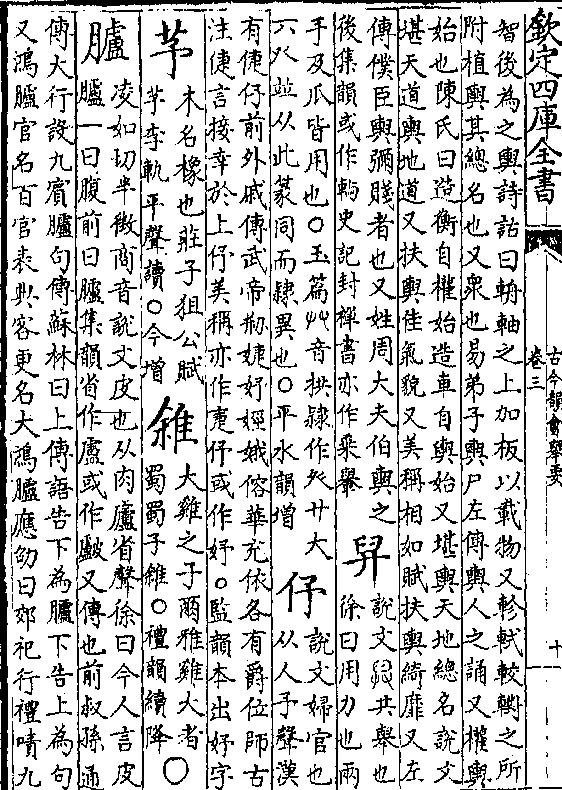 欽定四庫全書
古今韻會舉要
卷三
十
智後為之輿詩詁曰輈軸之上加板以載物又軫軾較轛之所
附植輿其總名也又衆也易弟子輿尸左傳輿人之誦又權輿
始也陳氏曰造衡自權始造車自輿始又堪輿天地總名說文
堪天道輿地道又扶輿佳氣貌又美稱相如賦扶輿綺靡又左
傳僕臣輿彌賤者也又姓周大夫伯輿之
後集韻或作 史記封禪書亦作乘轝
舁
說文 共舉也
徐曰用力也兩
手及爪皆用也○玉篇 音拱隸作 廾大
六 並从此篆同而隸異也○平水韻增
伃
說文婦官也
从人予聲漢
有倢伃前外戚傳武帝制婕妤娙娥傛華充依各有爵位師古
注倢言接幸於上伃美稱亦作 伃或作妤○監韻本出好字
芧
木名橡也莊子狙公賦
芧李軌平聲讀○今增
雓
大雞之子爾雅雞大者
蜀蜀子雓○禮韻續降
○
臚
凌如切半徵商音說文皮也从肉盧省聲徐曰今人言皮
臚一曰腹前曰臚集韻省作盧或作 又傳也前叔孫通
傳大行設九賓臚句傳蘇林曰上傳語告下為臚下告上為句
又鴻臚官名百官表典客更名大鴻臚應劭曰郊祀行禮嘖九